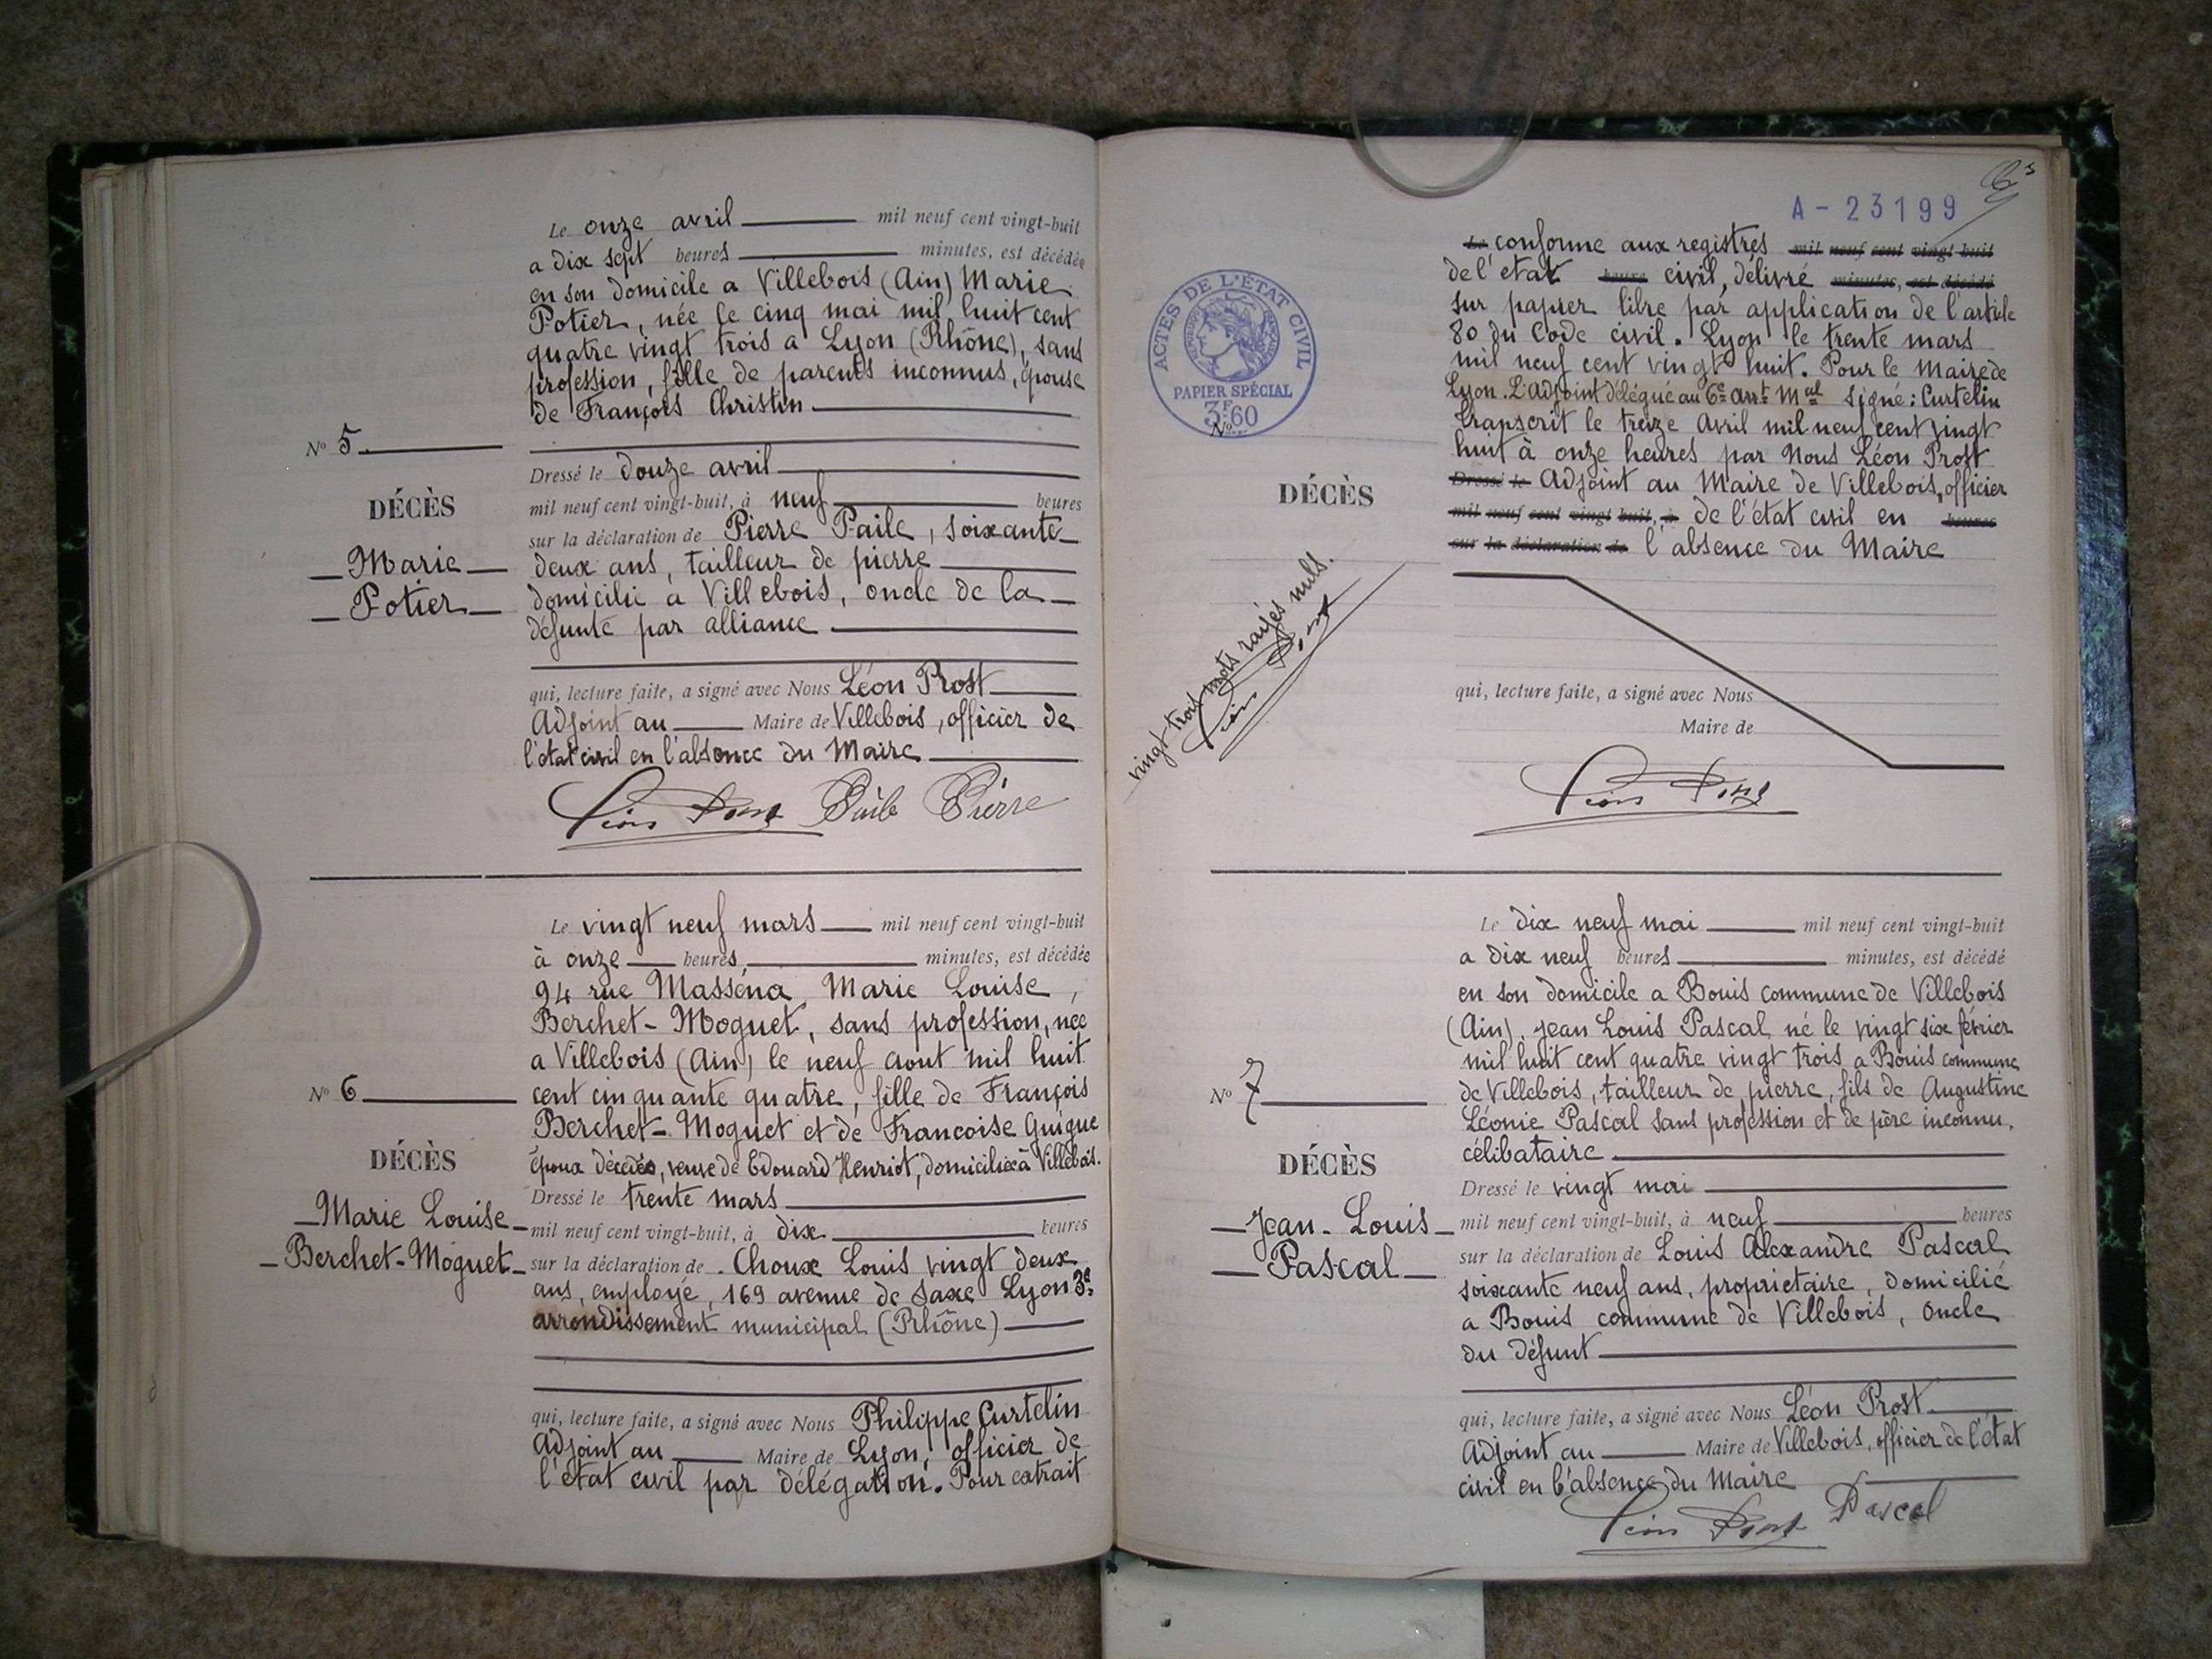 Le onze avril mil neuf cent vingt-huit
a dix sept heures minutes, est décédée
en son domicile a Villebois (Ain) Marie
Potier, née le cinq mai mil huit cent
quatre vingt trois a Lyon (Rhône), sans
profession, fille de parents inconnus, épouse
de François Christin
N° 5
Dressé le douze avril
mil neuf cent vingt-huit, à neuf heures
DÉCÈS
Marie
Potier
sur la déclaration de Pierre Paile, soixante
deux ans, tailleur de pierre
domicilié a Villebois, oncle de la
défunte par alliance
qui, lecture faite, a signé avec Nous Léon Prost
Adjoint au Maire de Villebois, officier de
l'état civil en l'absence du Maire
Léon Prost Paile Pierre
Le vingt neuf mars mil neuf cent vingt-huit
à onze heures, minutes, est décédée
94 rue Masséna Marie Louise,
Berchet-Moguet, sans profession, née
a Villebois (Ain) le neuf aout mil huit
cent cinquante quatre, fille de François
Berchet-Moguet et de Francoise Guigue
époux décédés, veuve de Edouard Henriot, domiciliée à Villebois.
N° 6
DÉCÈS
Marie Louise
Berchet-Moguet
Dressé le trente mars
mil neuf cent vingt-huit, à dix heures
sur la déclaration de Choux Louis vingt deux
ans, employé, 169 avenue de Saxe Lyon 3e
arrondissement municipal (Rhône)
qui, lecture faite, a signé avec Nous Philippe Curtelin
Adjoint au Maire de Lyon, officier de
l'état civil par délégation. Pour extrait
A-23199
ACTES DE L'ÉTAT CIVIL
PAPIER SPÉCIAL
3F60
Le conforme aux registres mil neuf cent vingt-huit
de l'etat heure civil, délivré minutes, est décédé
sur papier libre par application de l'article
80 du Code civil. Lyon le trente mars
mil neuf cent vingt huit. Pour le Maire de
Lyon. L'Adjoint délégué au 6e Arrt Mal Signé: Curtelin
Transcrit le treize Avril mil neuf cent vingt
huit à onze heures par Nous Léon Prost
Dressé le Adjoint au Maire de Villebois, officier
mil neuf cent vingt-huit, à de l'état civil en heures
sur la déclaration de l'absence du Maire
N°
DÉCÈS
vingt trois mots rayés nuls.
Léon Prost
qui, lecture faite, a signé avec Nous
Maire de
Léon Prost
Le dix neuf mai mil neuf cent vingt-huit
a dix neuf heures minutes, est décédé
en son domicile a Bouis commune de Villebois
(Ain), Jean Louis Pascal né le vingt six février
mil huit cent quatre vingt trois a Bouis commune
de Villebois, tailleur de pierre, fils de Augustine
Léonie Pascal sans profession et de père inconnu,
célibataire
N° 7
DÉCÈS
Jean-Louis
Pascal
Dressé le vingt mai
mil neuf cent vingt-huit, à neuf heures
sur la déclaration de Louis Alexandre Pascal
soixante neuf ans, proprietaire, domicilié
a Bouis commune de Villebois, oncle
du défunt
qui, lecture faite, a signé avec Nous Léon Prost
Adjoint au Maire de Villebois, officier de l'état
civil en l'absence du Maire
Léon Prost Pascal